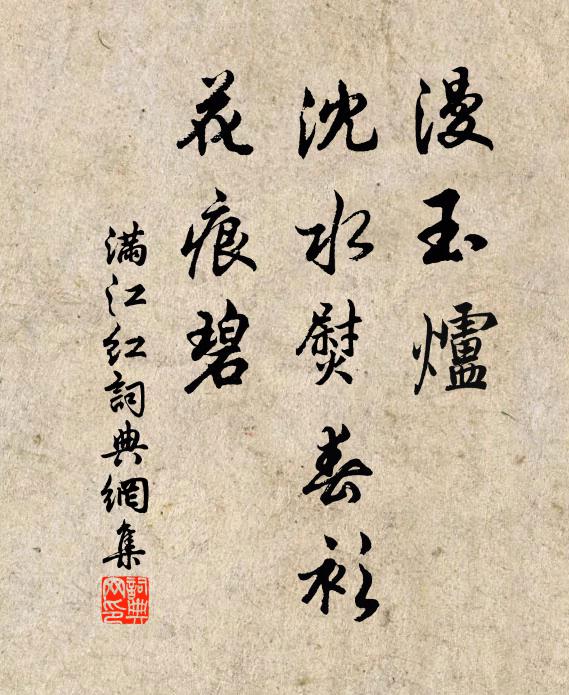 漫玉爐
沈水熨春衫
花痕碧
滿江紅詞典網集
詞典
网印